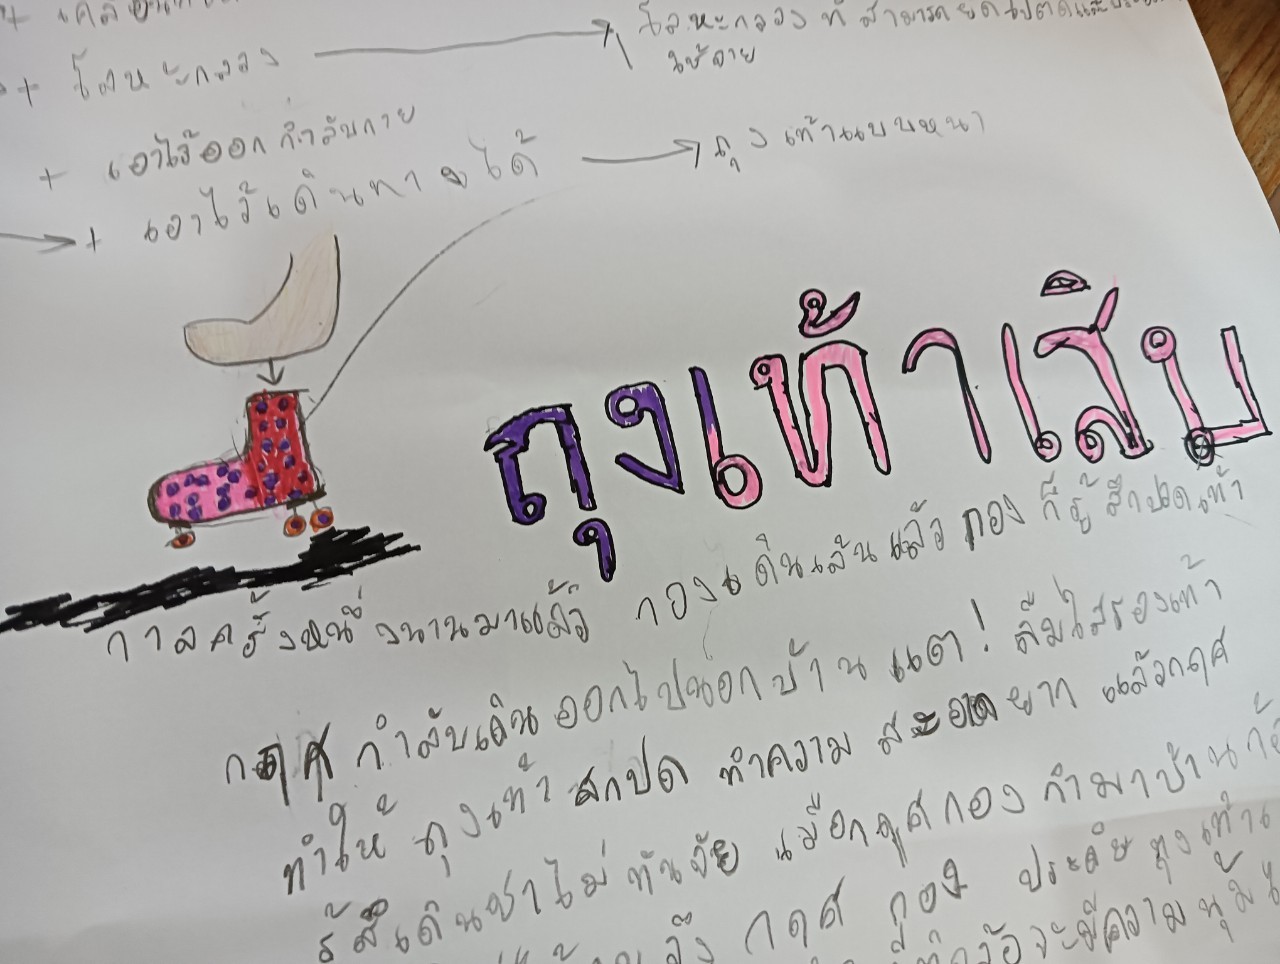 + โลหะกลวง
โลหะกลวง ที่ สามารถ ยึด
+ เอาไว้ออก กำลังกาย
+ เอาไว้เดินทางได้
ถุงเท้าแบบหนา
ถุงเท้าเสิบ
กาลครั้งหนึ่งนานมาแล้ว กองเดินเล่นแล้ว กอง ก็รู้สึกปวดเท้า
กฤศ กำลังเดินออกไปนอกบ้าน แต่! ลืมใส่รองเท้า
ทำให้ ถุงเท้า สกปด ทำความ สะอาด ยาก แล้วกฤศ
รู้สึเดินช้าไม่ทันจัย เมือกฤศกอง กำมาบ้าน
กฤศ กอง ประดิษ ถุงเท้า
จะมีความนุ้ม